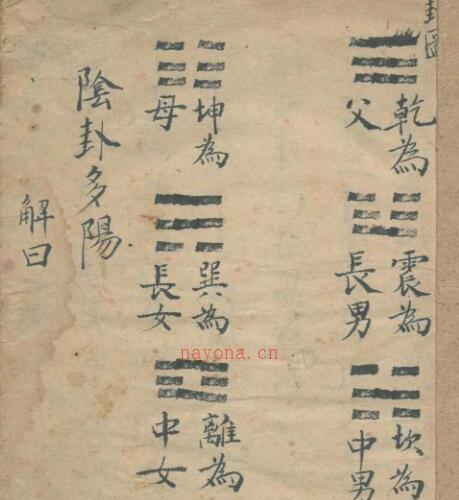 卦圖
乾為
父
震為
長男
坎為
中男
坤為
母
巽為
長女
離為
中女
陰卦多陽
解曰
nayona.cn